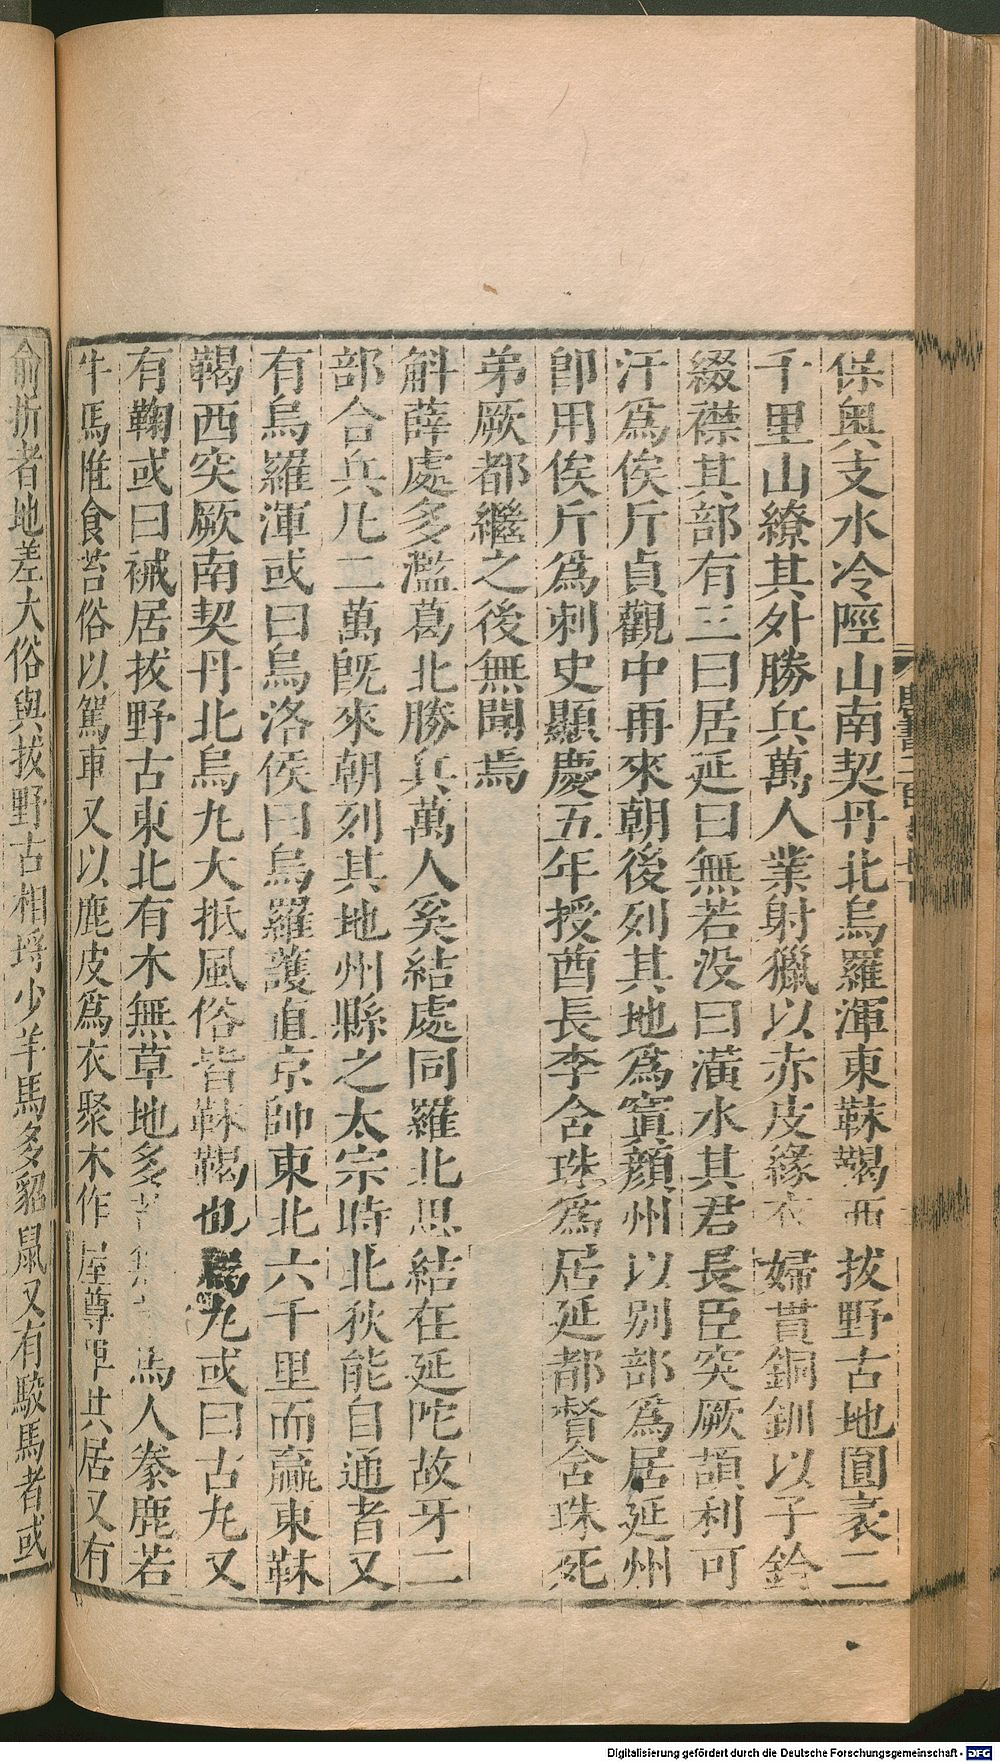 保奥支水冷陘山南契丹北烏羅渾東靺鞨西拔野古地圓袤二
千里山繚其外勝兵萬人業射獵以赤皮緣衣婦貫銅釧以子鈴
綴襟其部有三曰居延曰無若没曰潢水其君長臣突厥頡利可
汗爲俟斤貞觀中再來朝後列其地爲寘顏州以别部爲居延州
卽用俟斤爲刺史顯慶五年授酋長李含珠爲居延都督含珠死
弟厥都繼之後無聞焉
斛薛處多濫葛北勝兵萬人奚結處同羅北思結在延陀故牙二
部合兵凡二萬旣來朝列其地州縣之太宗時北狄能自通者又
有烏羅渾或曰烏洛侯曰烏羅護直京師東北六千里而贏東靺
鞨西突厥南契丹北烏丸大抵風俗皆靺鞨也烏丸或曰古丸又
有鞠或曰裓居拔野古東北有木無草地多苔無 馬人豢鹿若
牛馬惟食苔俗以駕車又以鹿皮爲衣聚木作屋尊卑共居又有
俞折者地差大俗與拔野古相埒少羊馬多貂鼠又有駮馬者或
Digitalisierung gefördert durch die Deutsche Forschungsgemeinschaft - DFG